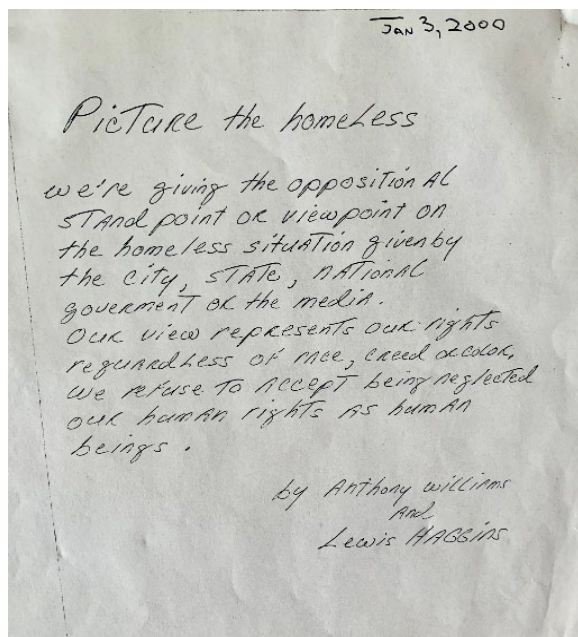 JAN 3, 2000
Picture the homeless
we're giving the oppositional
standpoint or viewpoint on
the homeless situation given by
the city, state, national
goverment or the media.
Our view represents our rights
reguardless of race, creed or color,
we refuse to accept being neglected
our human rights as human
beings.
by Anthony Williams
And
Lewis Haggins